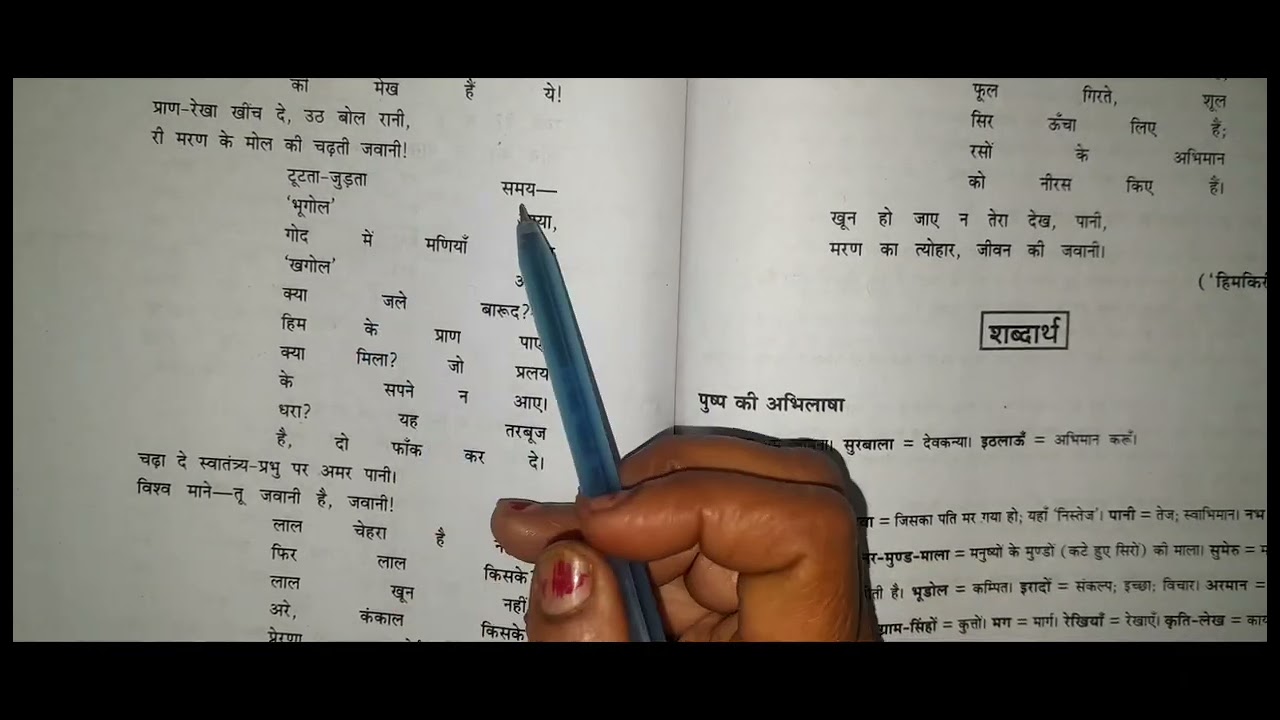 की मेख हैं ये!
प्राण-रेखा खींच दे, उठ बोल रानी,
री मरण के मोल की चढ़ती जवानी!
टूटता-जुड़ता समय—
'भूगोल'
गोद में मणियाँ
'खगोल'
क्या जले बारूद?
हिम के प्राण पाए
क्या मिला? जो प्रलय
के सपने न आए।
धरा? यह तरबूज
है, दो फाँक कर दे।
चढ़ा दे स्वातंत्र्य-प्रभु पर अमर पानी।
विश्व माने—तू जवानी है, जवानी!
लाल चेहरा है
फिर लाल किसके
लाल खून नहीं
अरे, कंकाल किसके
प्रेरणा
फूल गिरते, शूल
सिर ऊँचा लिए हैं;
रसों के अभिमान
को नीरस किए हैं।
खून हो जाए न तेरा देख, पानी,
मरण का त्योहार, जीवन की जवानी।
('हिमकिरी
शब्दार्थ
पुष्प की अभिलाषा
सुरबाला = देवकन्या। इठलाऊँ = अभिमान करूँ।
= जिसका पति मर गया हो; यहाँ 'निस्तेज'। पानी = तेज; स्वाभिमान। नभ
र-मुण्ड-माला = मनुष्यों के मुण्डों (कटे हुए सिरों) की माला। सुमेरु =
ती है। भूडोल = कम्पित। इरादों = संकल्प; इच्छा; विचार। अरमान =
ग्राम-सिंहों = कुत्तों। मग = मार्ग। रेखियाँ = रेखाएँ। कृति-लेख =